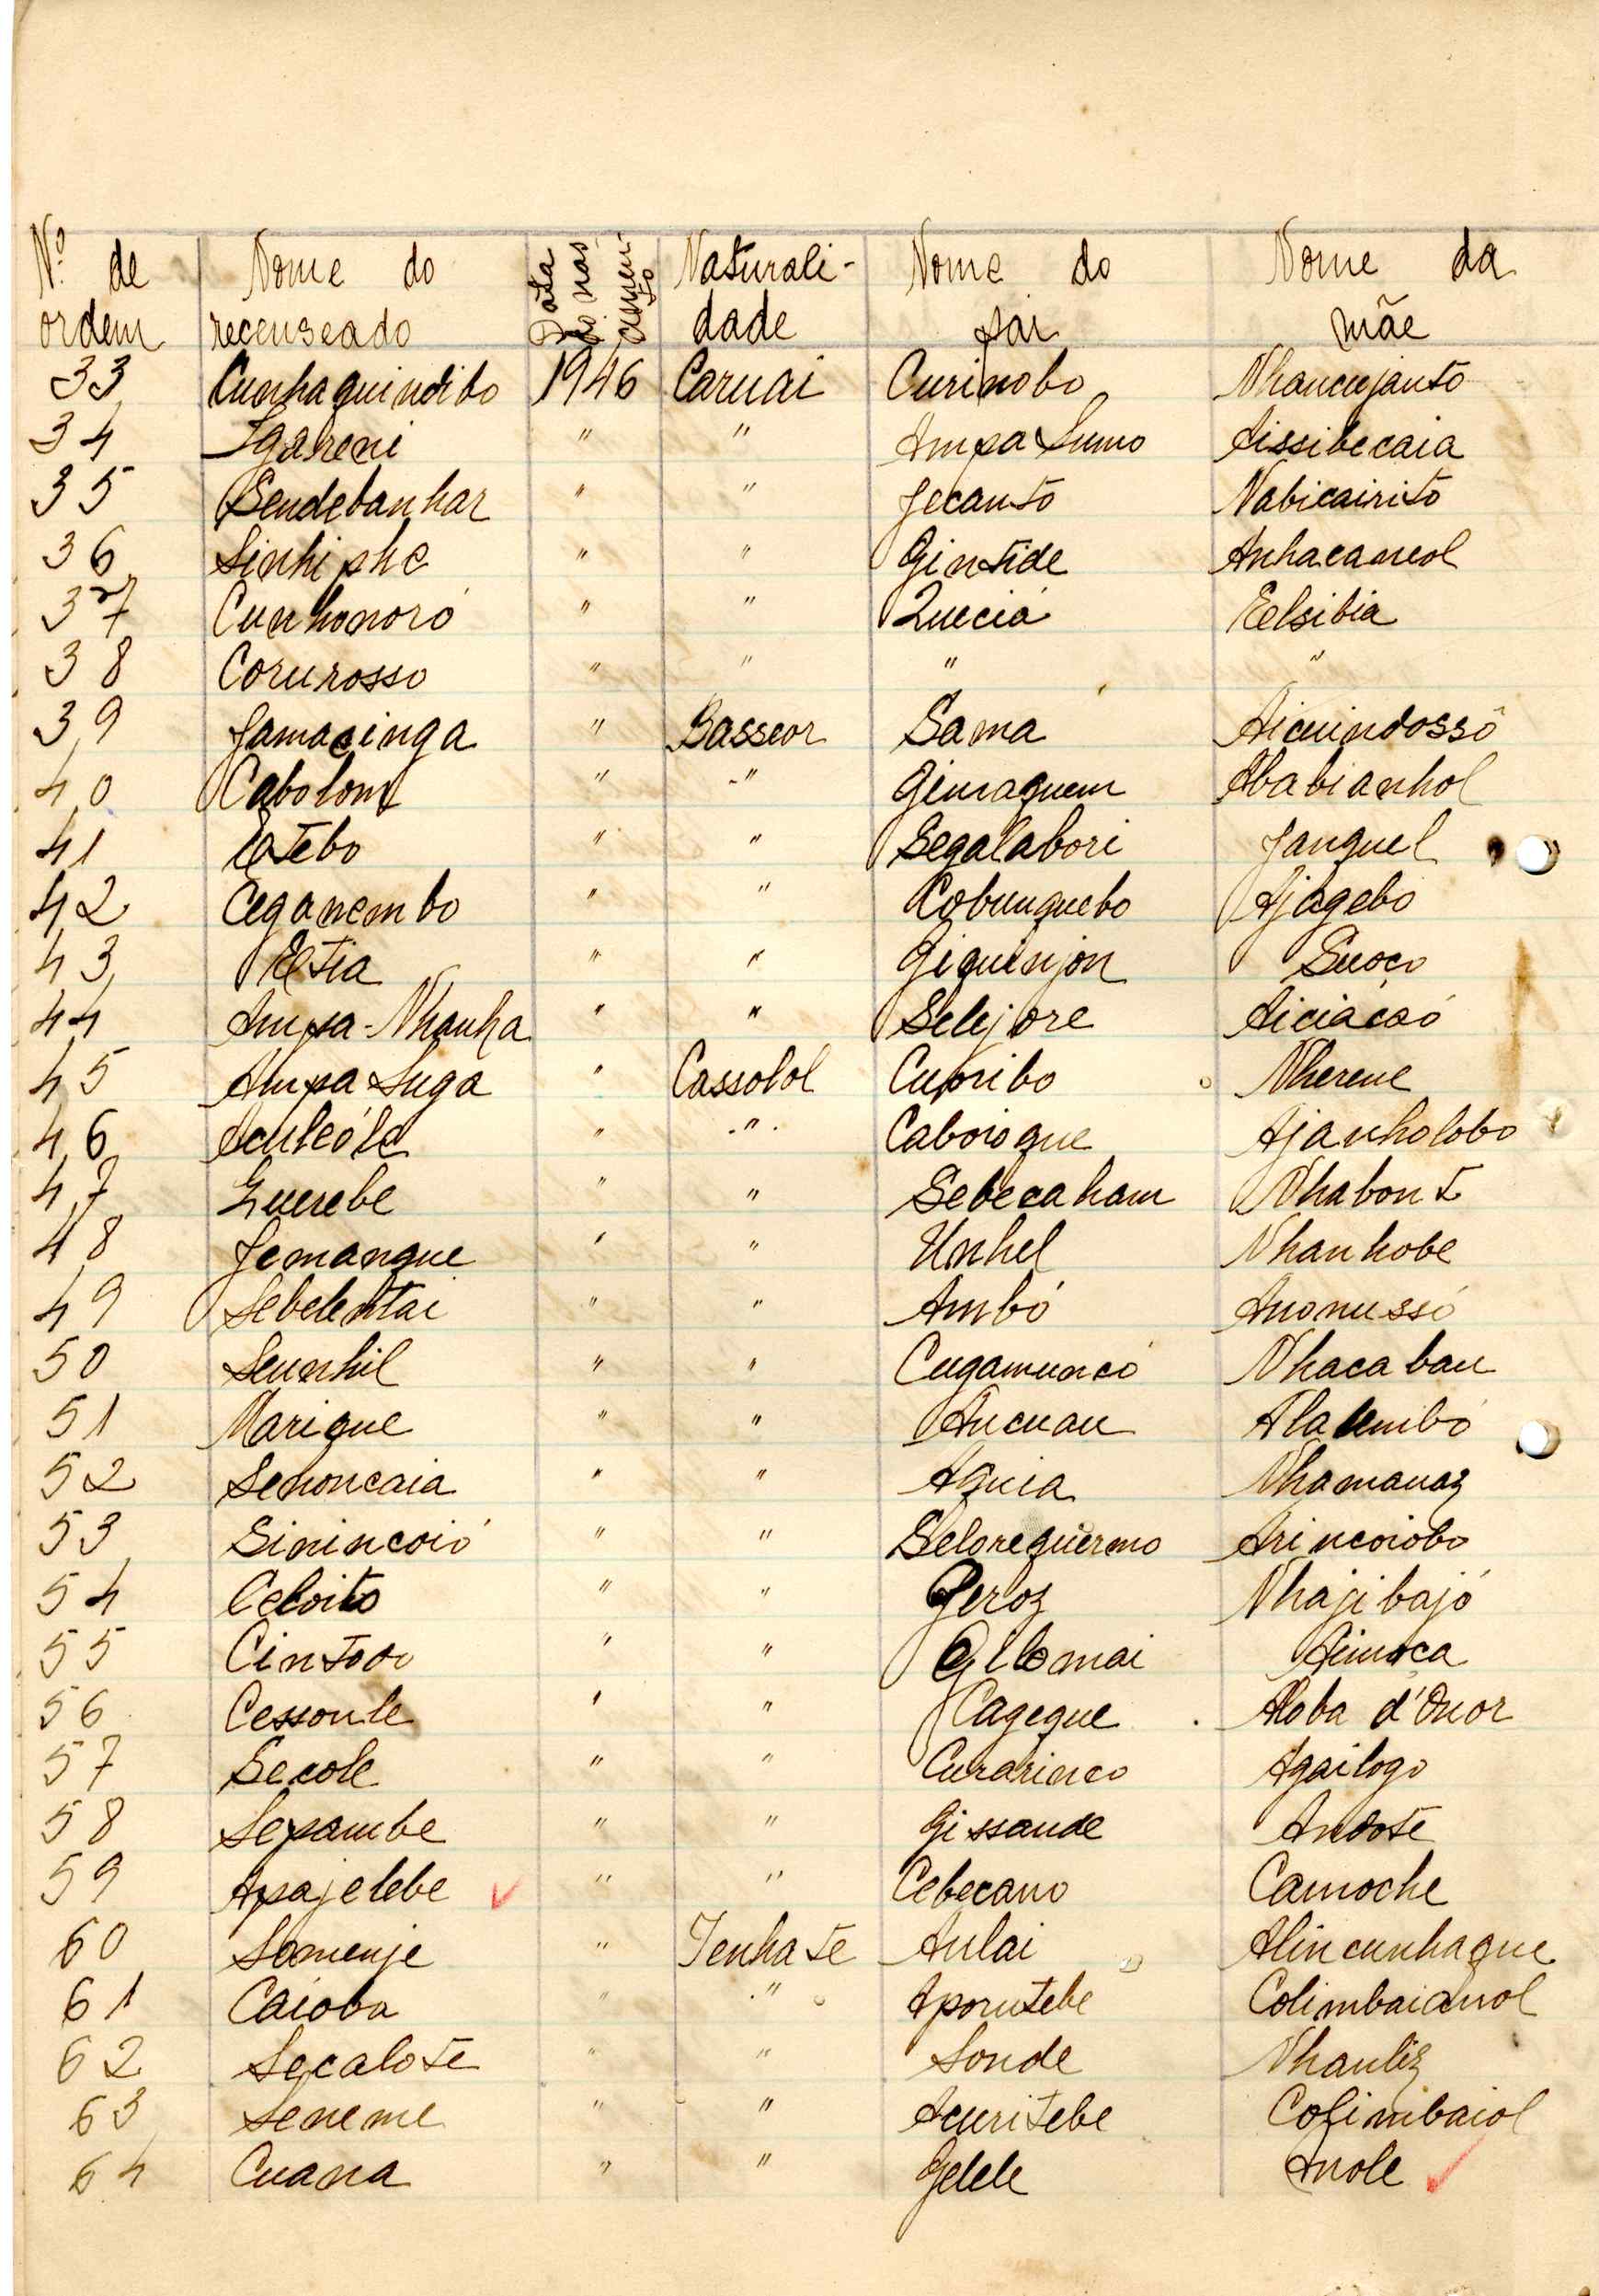 Nº de Nome do Data do nas- cimen- to Naturali- Nome do Nome da
ordem recenseado dade pai mãe
33 Cunhaquindibo 1946 Caruai Curinobo Nhancujanto
34 Igareni " " Ampa Sumo Aissibecaia
35 Sendebanhar " " Jecanto Nabicairito
36 Sinhiphe " " Gintide Anhacaneol
37 Cunhonoró " " Queciá Eelsibia
38 Corurosso " " " "
39 Jamacinga " Basseor Sama Aicuindossô
40 Cabolom " " Gimaquem Ababianhol
41 Eatebo " " Segalabori Janquel
42 Ceganembo " " Cobunquebo Ajagebo
43 Eltia " " Giquinjon Suoco
44 Ampa-Nhanha " " Selejore Aiciacaó
45 Ampa Suga " Cassolol Cuoribo Nherene
46 " " Caboioque Ajanholobo
47 Querebe " " Sebecaham Nhabont
48 Jemanque " " Unhel Nhanhobe
49 Sebelentai " " Ambó Anonussó
50 Seunhil " " Cugamuncó Nhacaban
51 Marique " " Ancuau
52 Senoncaia " " Aquia Nhamanaz
53 Sinincoió " " Selorequermo Arincoiobo
54 Celoito " " Geroz Nhajibajó
55 Cintodo " " Gilomai Aimoca
56 Cessoule " " Cageque Aloba d'Onor
57 Secole " " Curarinco Agailogo
58 Sepambe " " Gissande Andote
59 Apajelebe " " Cebecano Camoche
60 Somenje " Tenhate Aulai Alincunhaque
61 Caioba " " Aporutebe Colimbaianol
62 Secalote " " Sonde Nhauliz
63 Seneme " " Acuritebe Cofimbaiol
64 Cuana " " Gelele Anole